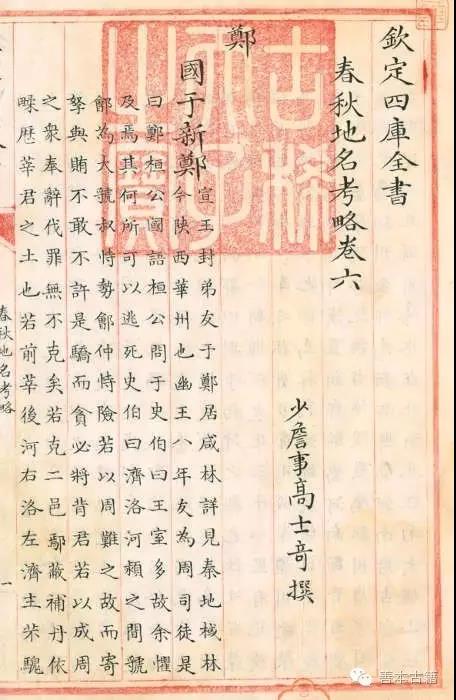 欽定四庫全書
春秋地名考略卷六
少詹事高士奇撰
鄭
國于新鄭
宣王封弟友于鄭居咸林詳見秦地棫林
今陜西華州也幽王八年友為周司徒是
曰鄭桓公國語桓公問于史伯曰王室多故余懼
及焉其何所可以逃死史伯曰濟洛河頴之間虢
鄶為大虢叔恃勢鄶仲恃險若以周難之故而寄
孥與賄不敢不許是驕而貪必將背君若以成周
之衆奉辭伐罪無不克矣若克二邑鄢蔽補丹依
歴莘君之土也若前莘後河右洛左濟主芣騩
春秋地名考略
一
古稀天子之寶
善本古籍